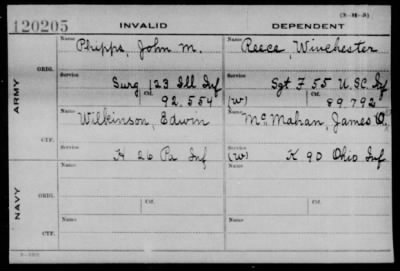 (3-H-5)
120205 INVALID DEPENDENT
Name Phipps, John M. Name Reece, Winchester
ARMY
ORIG.
Service Surg 123 Ill Inf Service Sgt F 55 U.S.C. Inf
Ctf. 92,554 (W) Ctf. 89,792
Name Wilkinson, Edwin Name McMahan, James O.
CTF.
Service H 26 Pa Inf Service (W) K 90 Ohio Inf
NAVY
Name Name
ORIG.
Service Ctf. Service Ctf.
Name Name
CTF.
Service Service